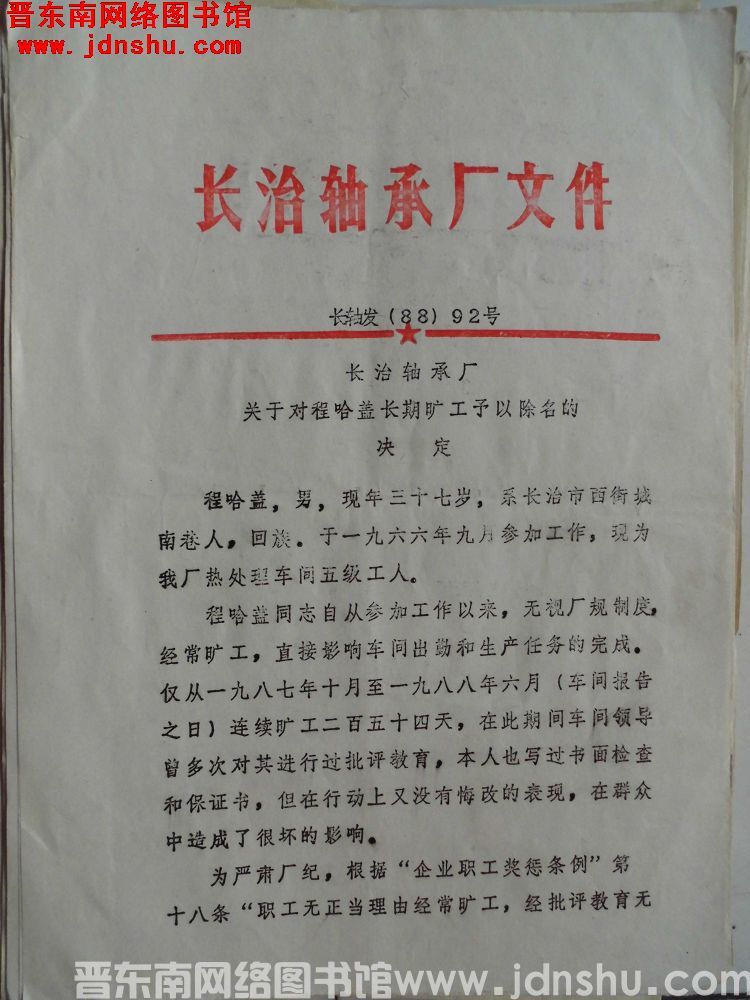 晋东南网络图书馆
www.jdnshu.com
长治轴承厂文件
长轴发(88)92号
长治轴承厂
关于对程哈盖长期旷工予以除名的
决 定
程哈盖，男，现年三十七岁，系长治市西街城
南巷人，回族．于一九六六年九月参加工作，现为
我厂热处理车间五级工人。
程哈盖同志自从参加工作以来，无视厂规制度，
经常旷工，直接影响车间出勤和生产任务的完成。
仅从一九八七年十月至一九八八年六月（车间报告
之日）连续旷工二百五十四天，在此期间车间领导
曾多次对其进行过批评教育，本人也写过书面检查
和保证书，但在行动上又没有悔改的表现，在群众
中造成了很坏的影响。
为严肃厂纪，根据“企业职工奖惩条例”第
十八条“职工无正当理由经常旷工，经批评教育无
晋东南网络图书馆www.jdnshu.com